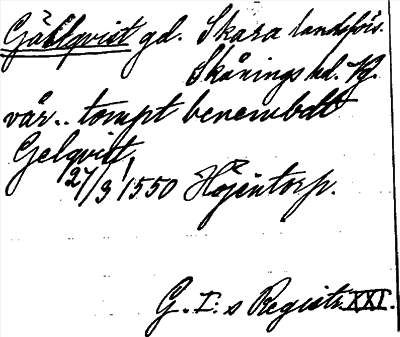 Gällqvist gd. Skara landsförs.
Skånings hd. Vg.
vår.. tompt benembdt
Gelqvist
27/3 1550 Höjentorp.
G. I:s Registr. XXI.